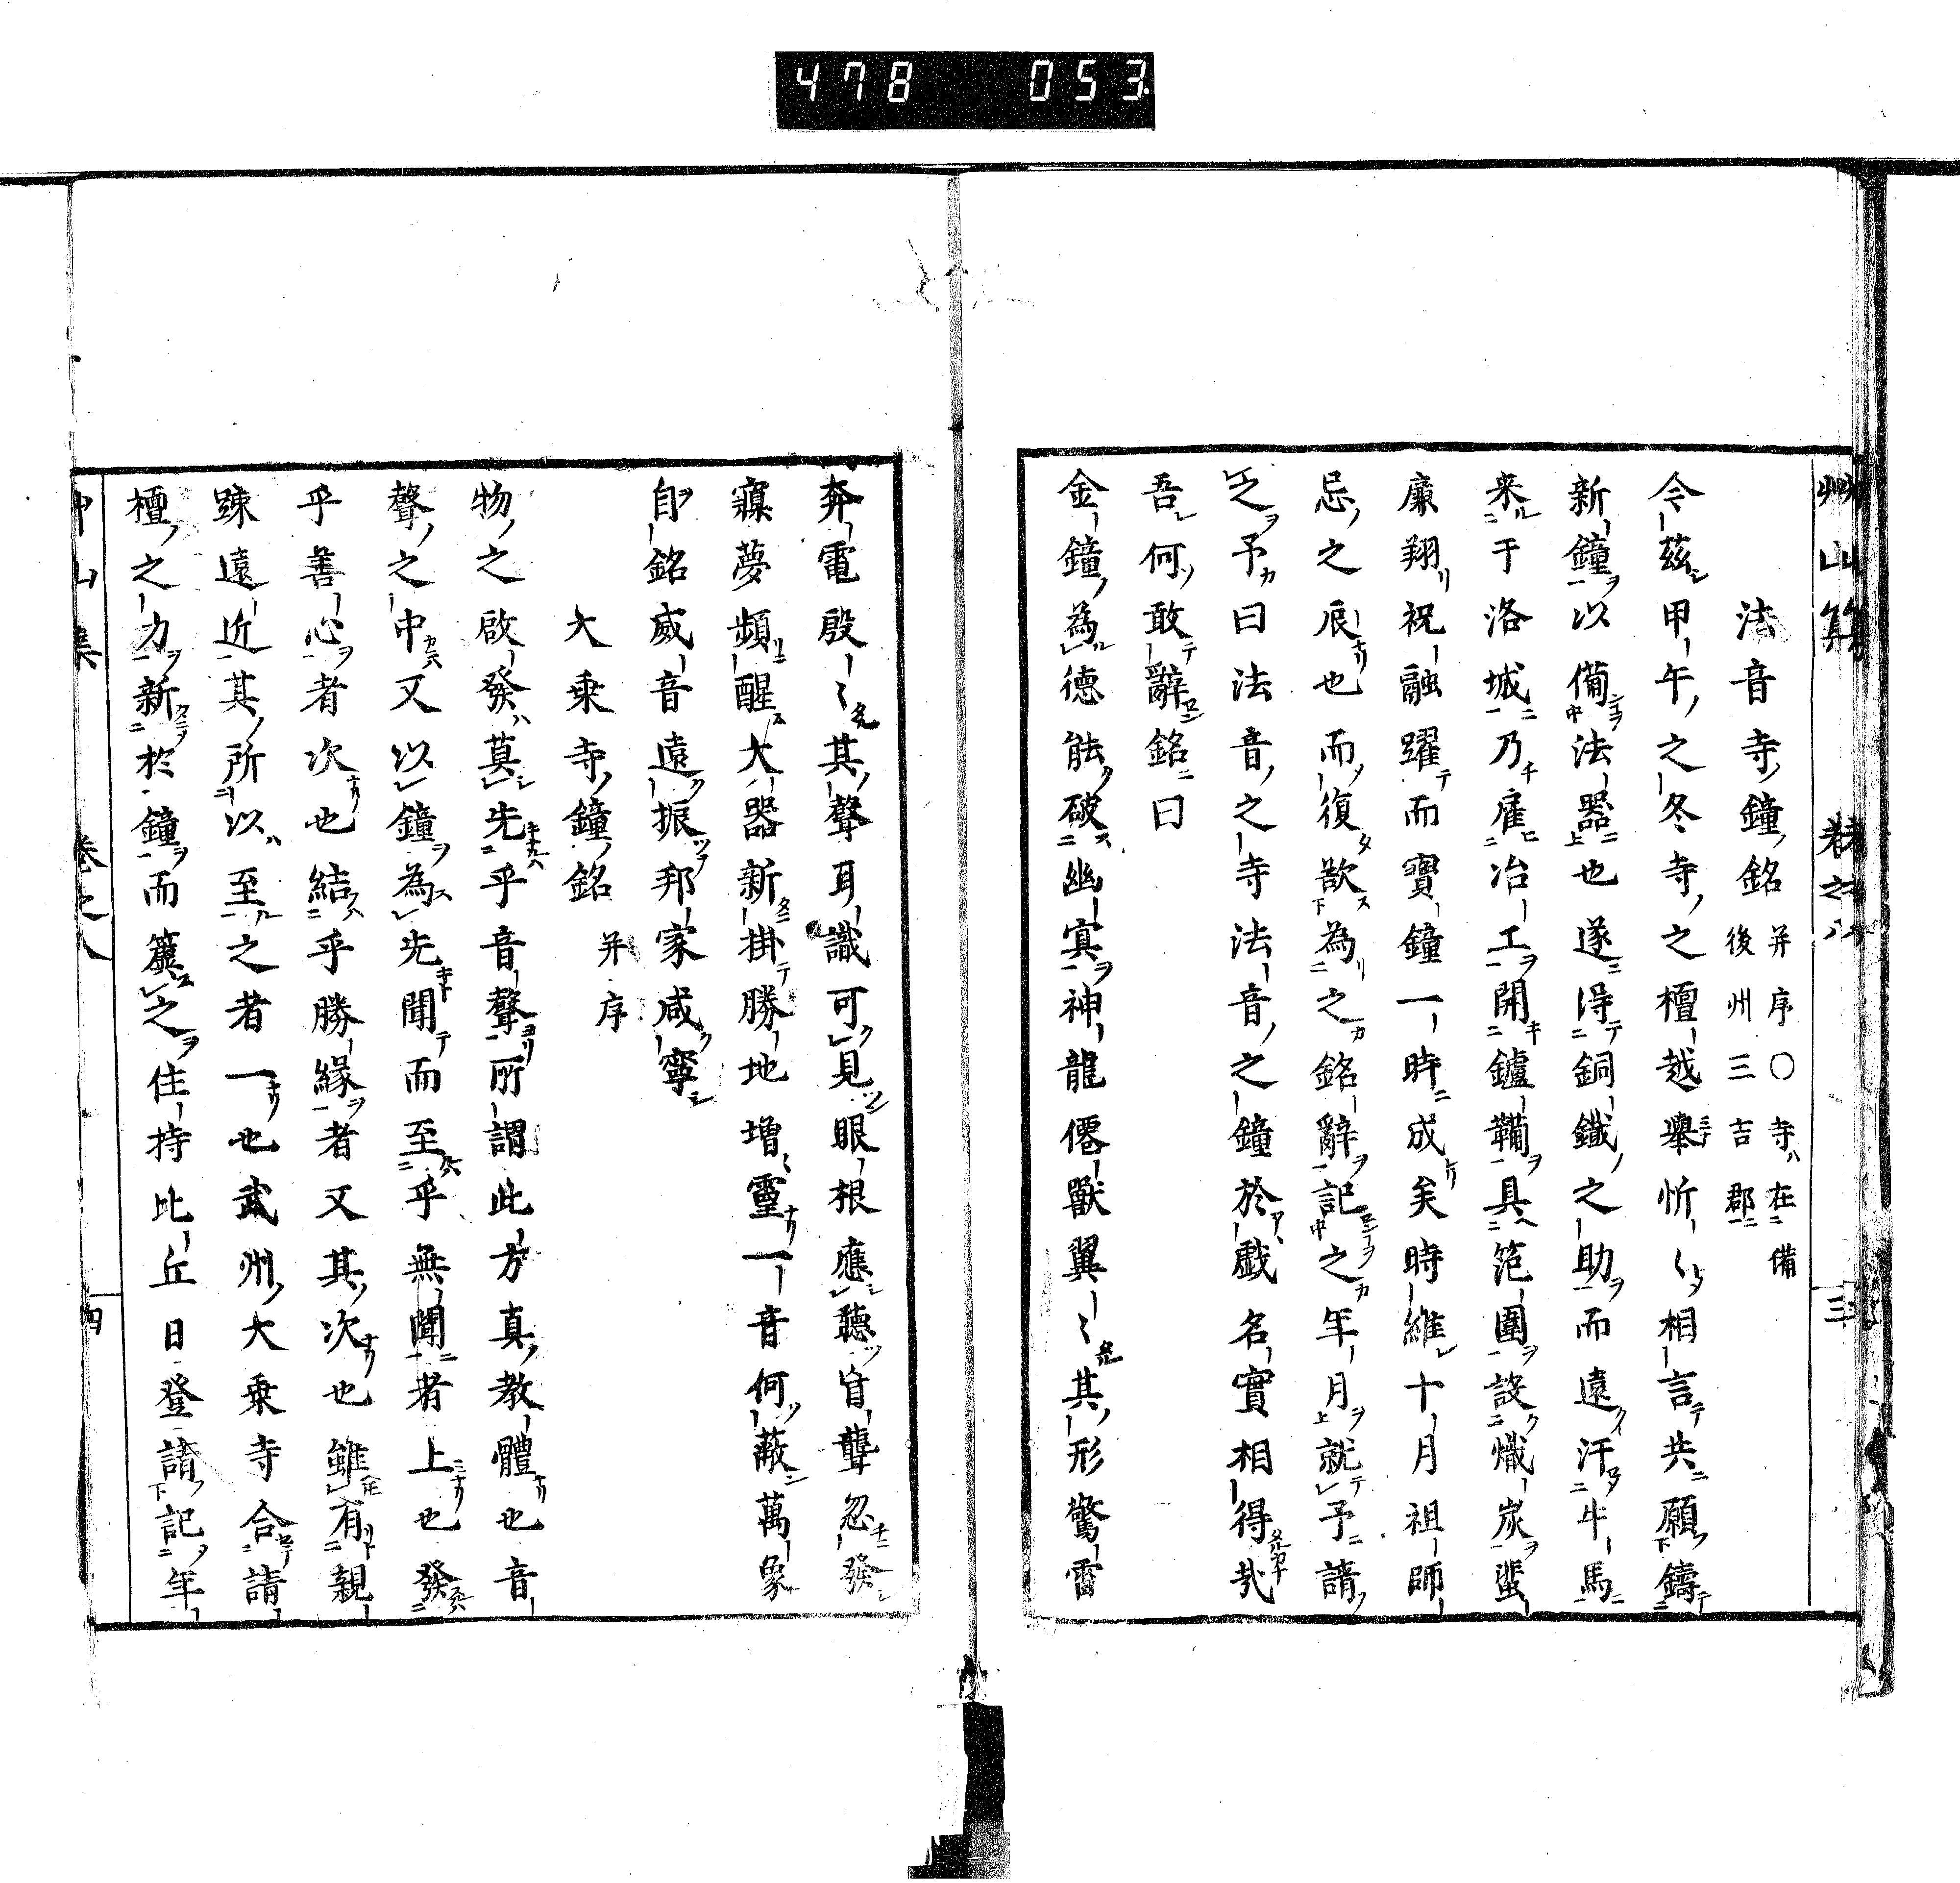 478 053
艸山集 卷之八 三
法音寺鐘銘 并序〇寺在備
後州三吉郡
今茲甲午之冬寺之檀越舉忻〻相言共願鑄
新鐘以備法器也遂得銅鐵之助而遠汗牛馬
来于洛城乃雇冶工開鑪鞴具笵圍設熾炭蜚
廉翔祝融躍而寶鐘一時成矣時維十月祖師
忌之辰也而復歆為之銘辭記之年月就予請
之予曰法音之寺法音之鐘於戲名實相得㢤
吾何敢辭銘曰
金鐘為德能破幽冥神龍僊獸翼〻其形驚雷
奔電殷〻其聲耳識可見眼根應聽盲聾忽發
寱夢頻醒大器新掛勝地增靈一音何蔽萬象
自銘威音遠振邦家咸寧
大乗寺鐘銘 并序
物之啟發莫先乎音聲所謂此方真教體也音
聲之中又以鐘為先聞而至乎無聞者上也發
乎善心者次也結乎勝緣者又其次也雖有親
踈遠近其所以至之者一也武州大乗寺合請
檀之力新於鐘而簴之住持比丘日登請記年
艸山集 卷之八 四